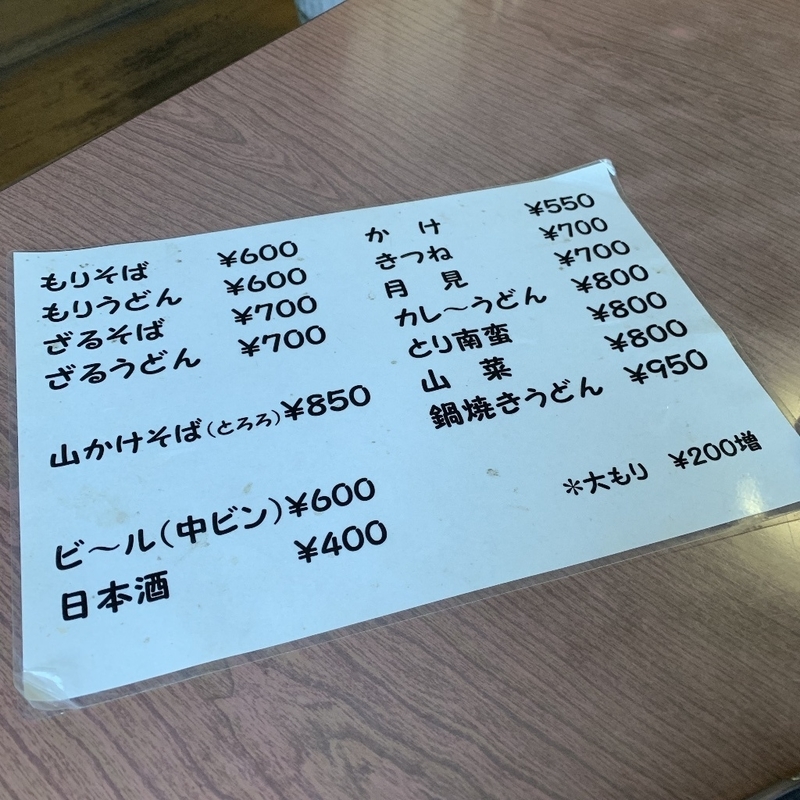 もりそば ¥600
もりうどん ¥600
ざるそば ¥700
ざるうどん ¥700
山かけそば(とろろ)¥850
ビ～ル(中ビン)¥600
日本酒 ¥400
かけ ¥550
きつね ¥700
月見 ¥700
カレ～うどん ¥800
とり南蛮 ¥800
山菜 ¥800
鍋焼きうどん ¥950
*大もり ¥200増